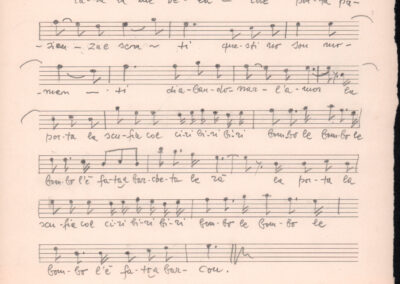 por-ta pa-
-zien-zae sem - ti que-sti no son mo-
-men - ti dia-ban-do-nar-l'a-mor la
por-ta la scu-fia col ci-ri bi-ri bi-ri bom-bo le bom-bo le
bom-bo l'è fa-tza bar-che-ta le zà la por-ta la
scu-fia col ci-ri bi-ri bi-ri bom-bo le bom-bo le
bom-bo l'è fa-tza bar- con.